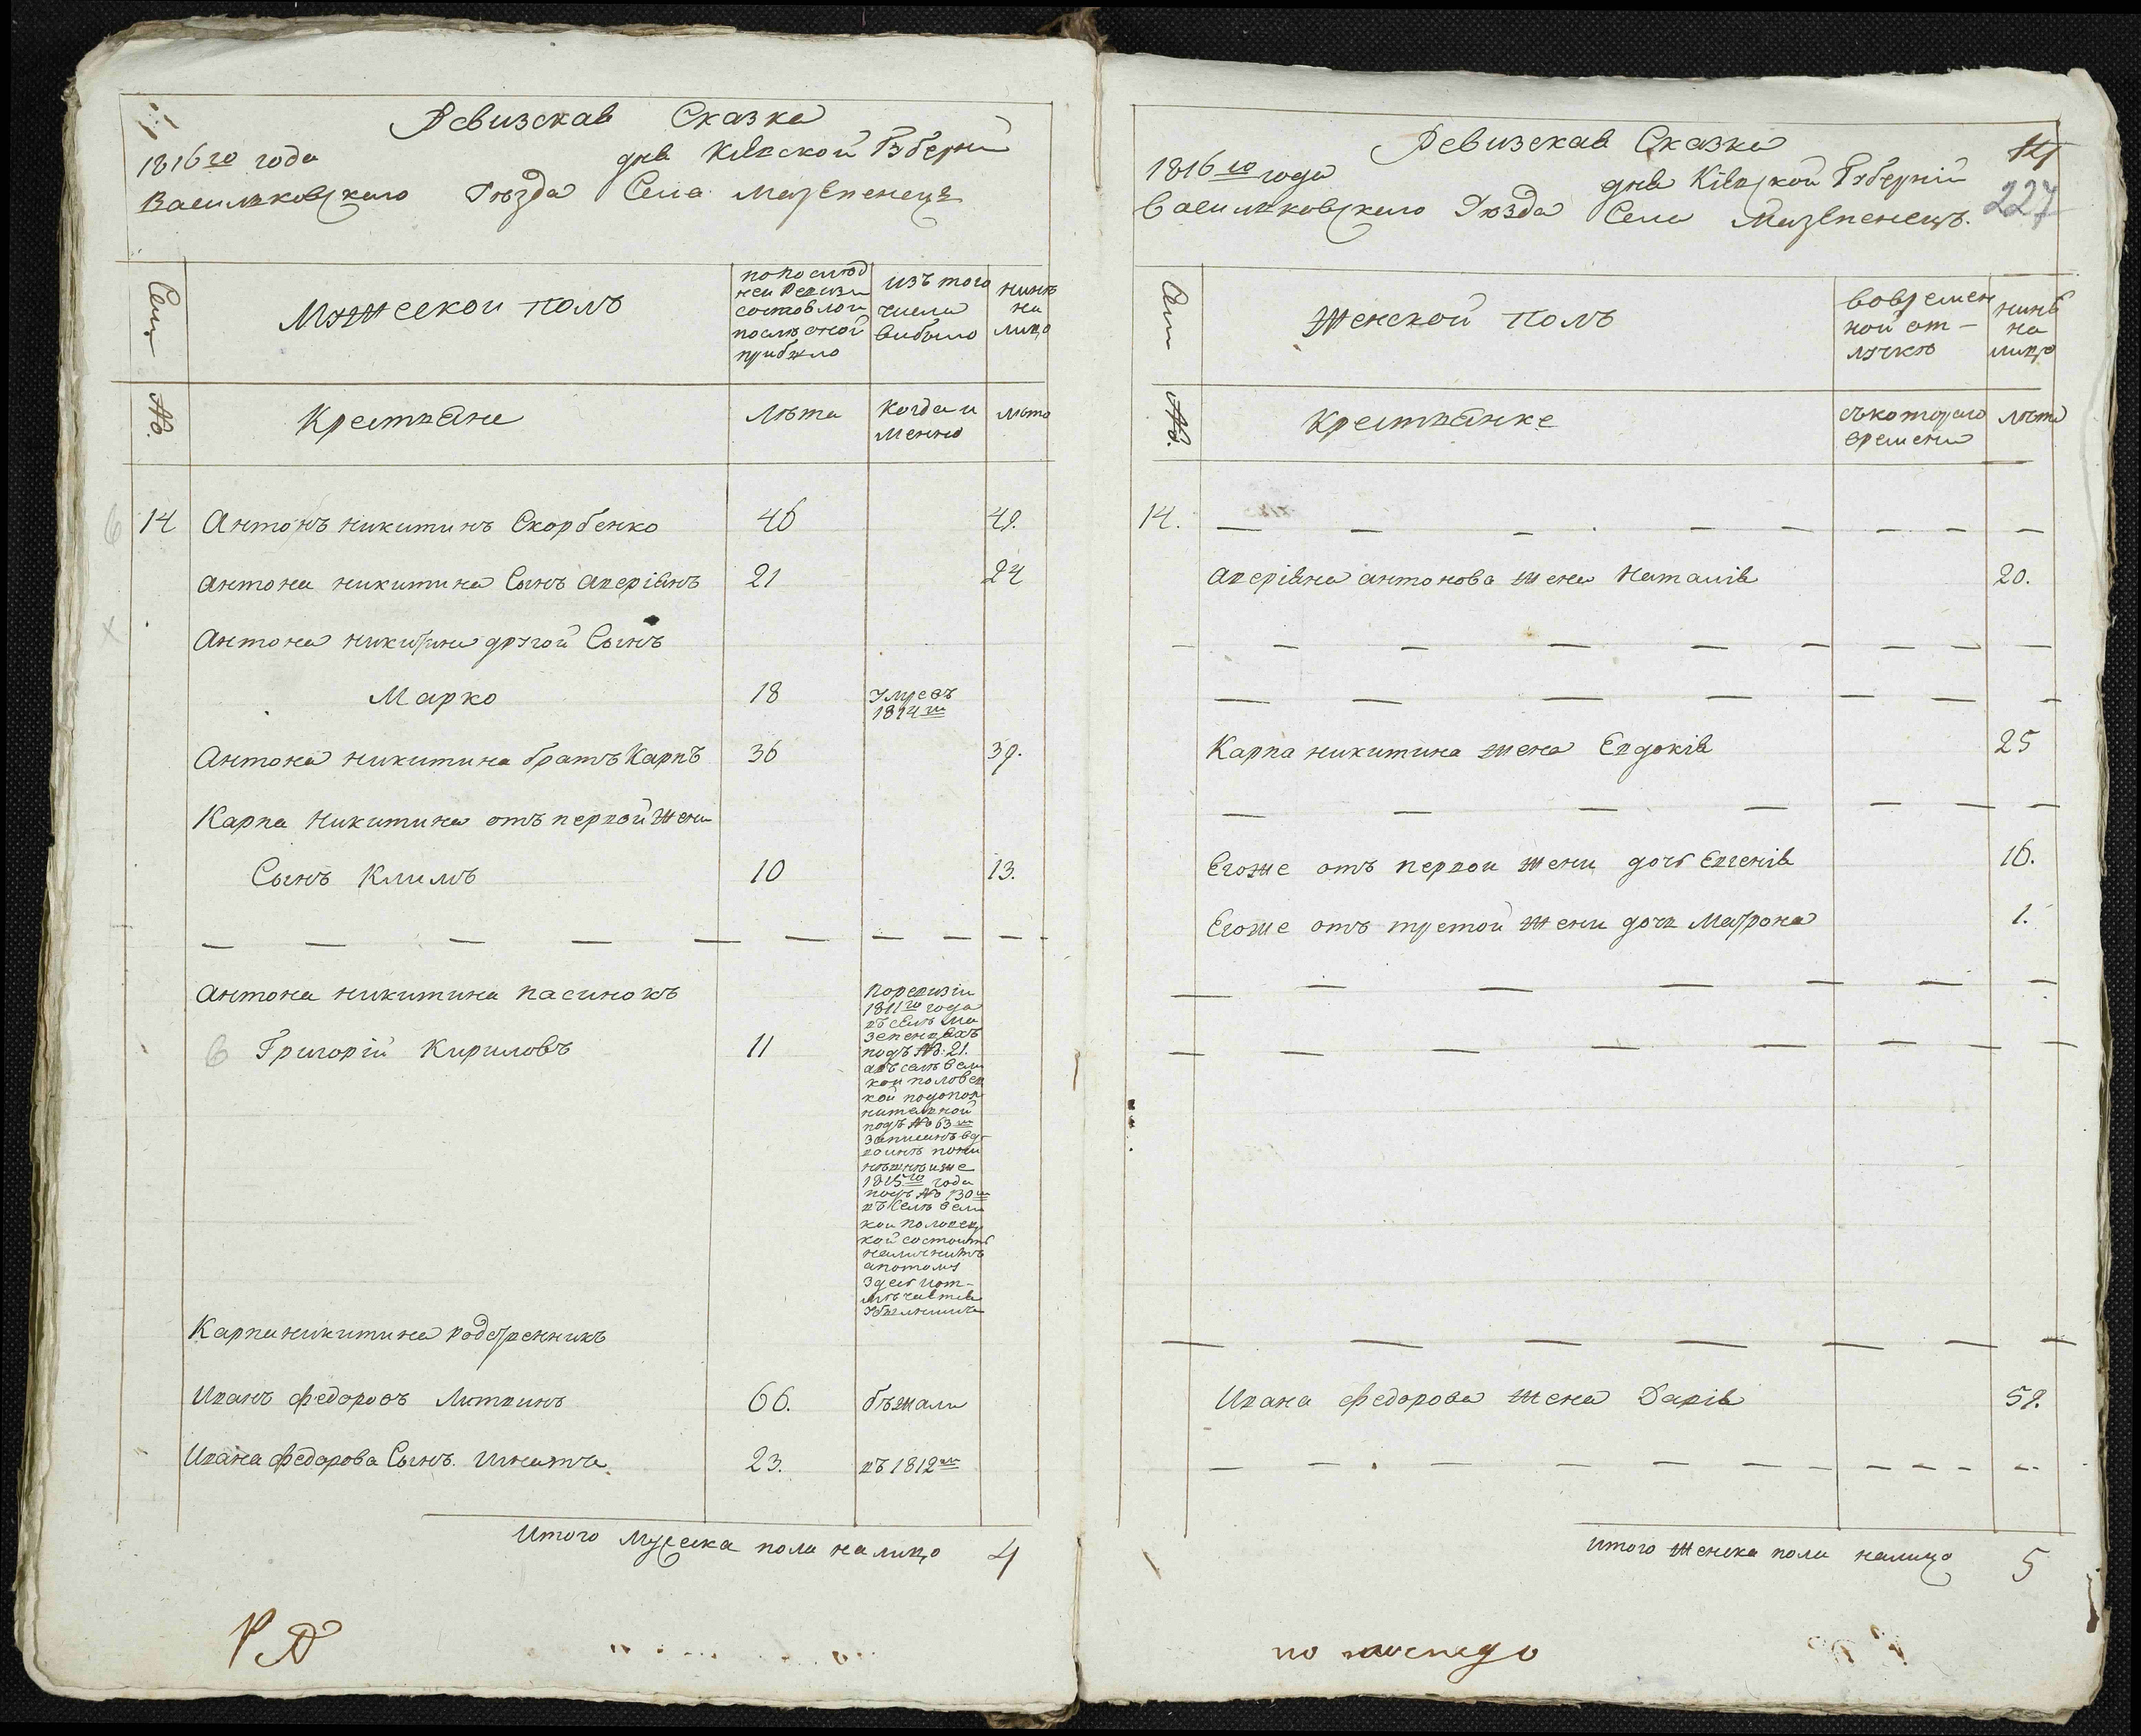 Ревизская Сказка
1816го года дня Кіевской Губерніи
Васильковского Уезда Села Мазепенецъ
Сем
Мужескои полъ
по послѣд
неи Ревизи
состояло и
послѣ оной
прибыло
изъ того
числа
выбыло
нинѣ
на
лицо
№.
Крестьяне
Лѣта
Когда и
менно
лѣта
14 Антонъ никитинъ Скорбенко 46 49.
Антона никитина Сынъ аверіянъ 21 24
Антона никитина другой Сынъ
Марко 18 умре въ
1814м
Антона никитина братъ Карпъ 36 39.
Карпа Никитина отъ первой жени
Сынъ Климъ 10 13.
Антона никитина пасинокъ
Григорій Кириловъ 11
По ревизіи
1811го года
въ селѣ Ма
зепенцахъ
подъ №: 21.
а въ селѣ вели
кои половец
кой подопол
нителной
подъ № 63м
записанъ вд
воинѣ по ни
нѣшнѣи же
1815го года
подъ № 130м
въ Селѣ вели
кои половец
кой состоитъ
наличнимъ
а потому
здесь и от-
мѣчается
Карпа никитина родственникъ
Иванъ федоровъ Литвинъ 66. бѣжали
Ивана федорова Сынъ Игнатъ 23. въ 1812м
Итого Мужеска пола на лицо 4
Ревизская Сказка
14
1816го года дня Кіевской Губерній
Васильковского Уезда Села Мазепенецъ.
227
Сем
Женской полъ
во времен
ной от-
лучкѣ
нинѣ
на
лицо
№.
Крестьянке
съ котораго
времени
лѣта
14.
Аверіяна антонова жена Наталія 20.
Карпа никитина жена Евдокія 25
Егоже отъ первои жени дочь Евгенія 16.
Егоже отъ третои жени дочь Матрона 1.
Ивана федорова жена Дарія 59.
Итого женска пола налицо 5